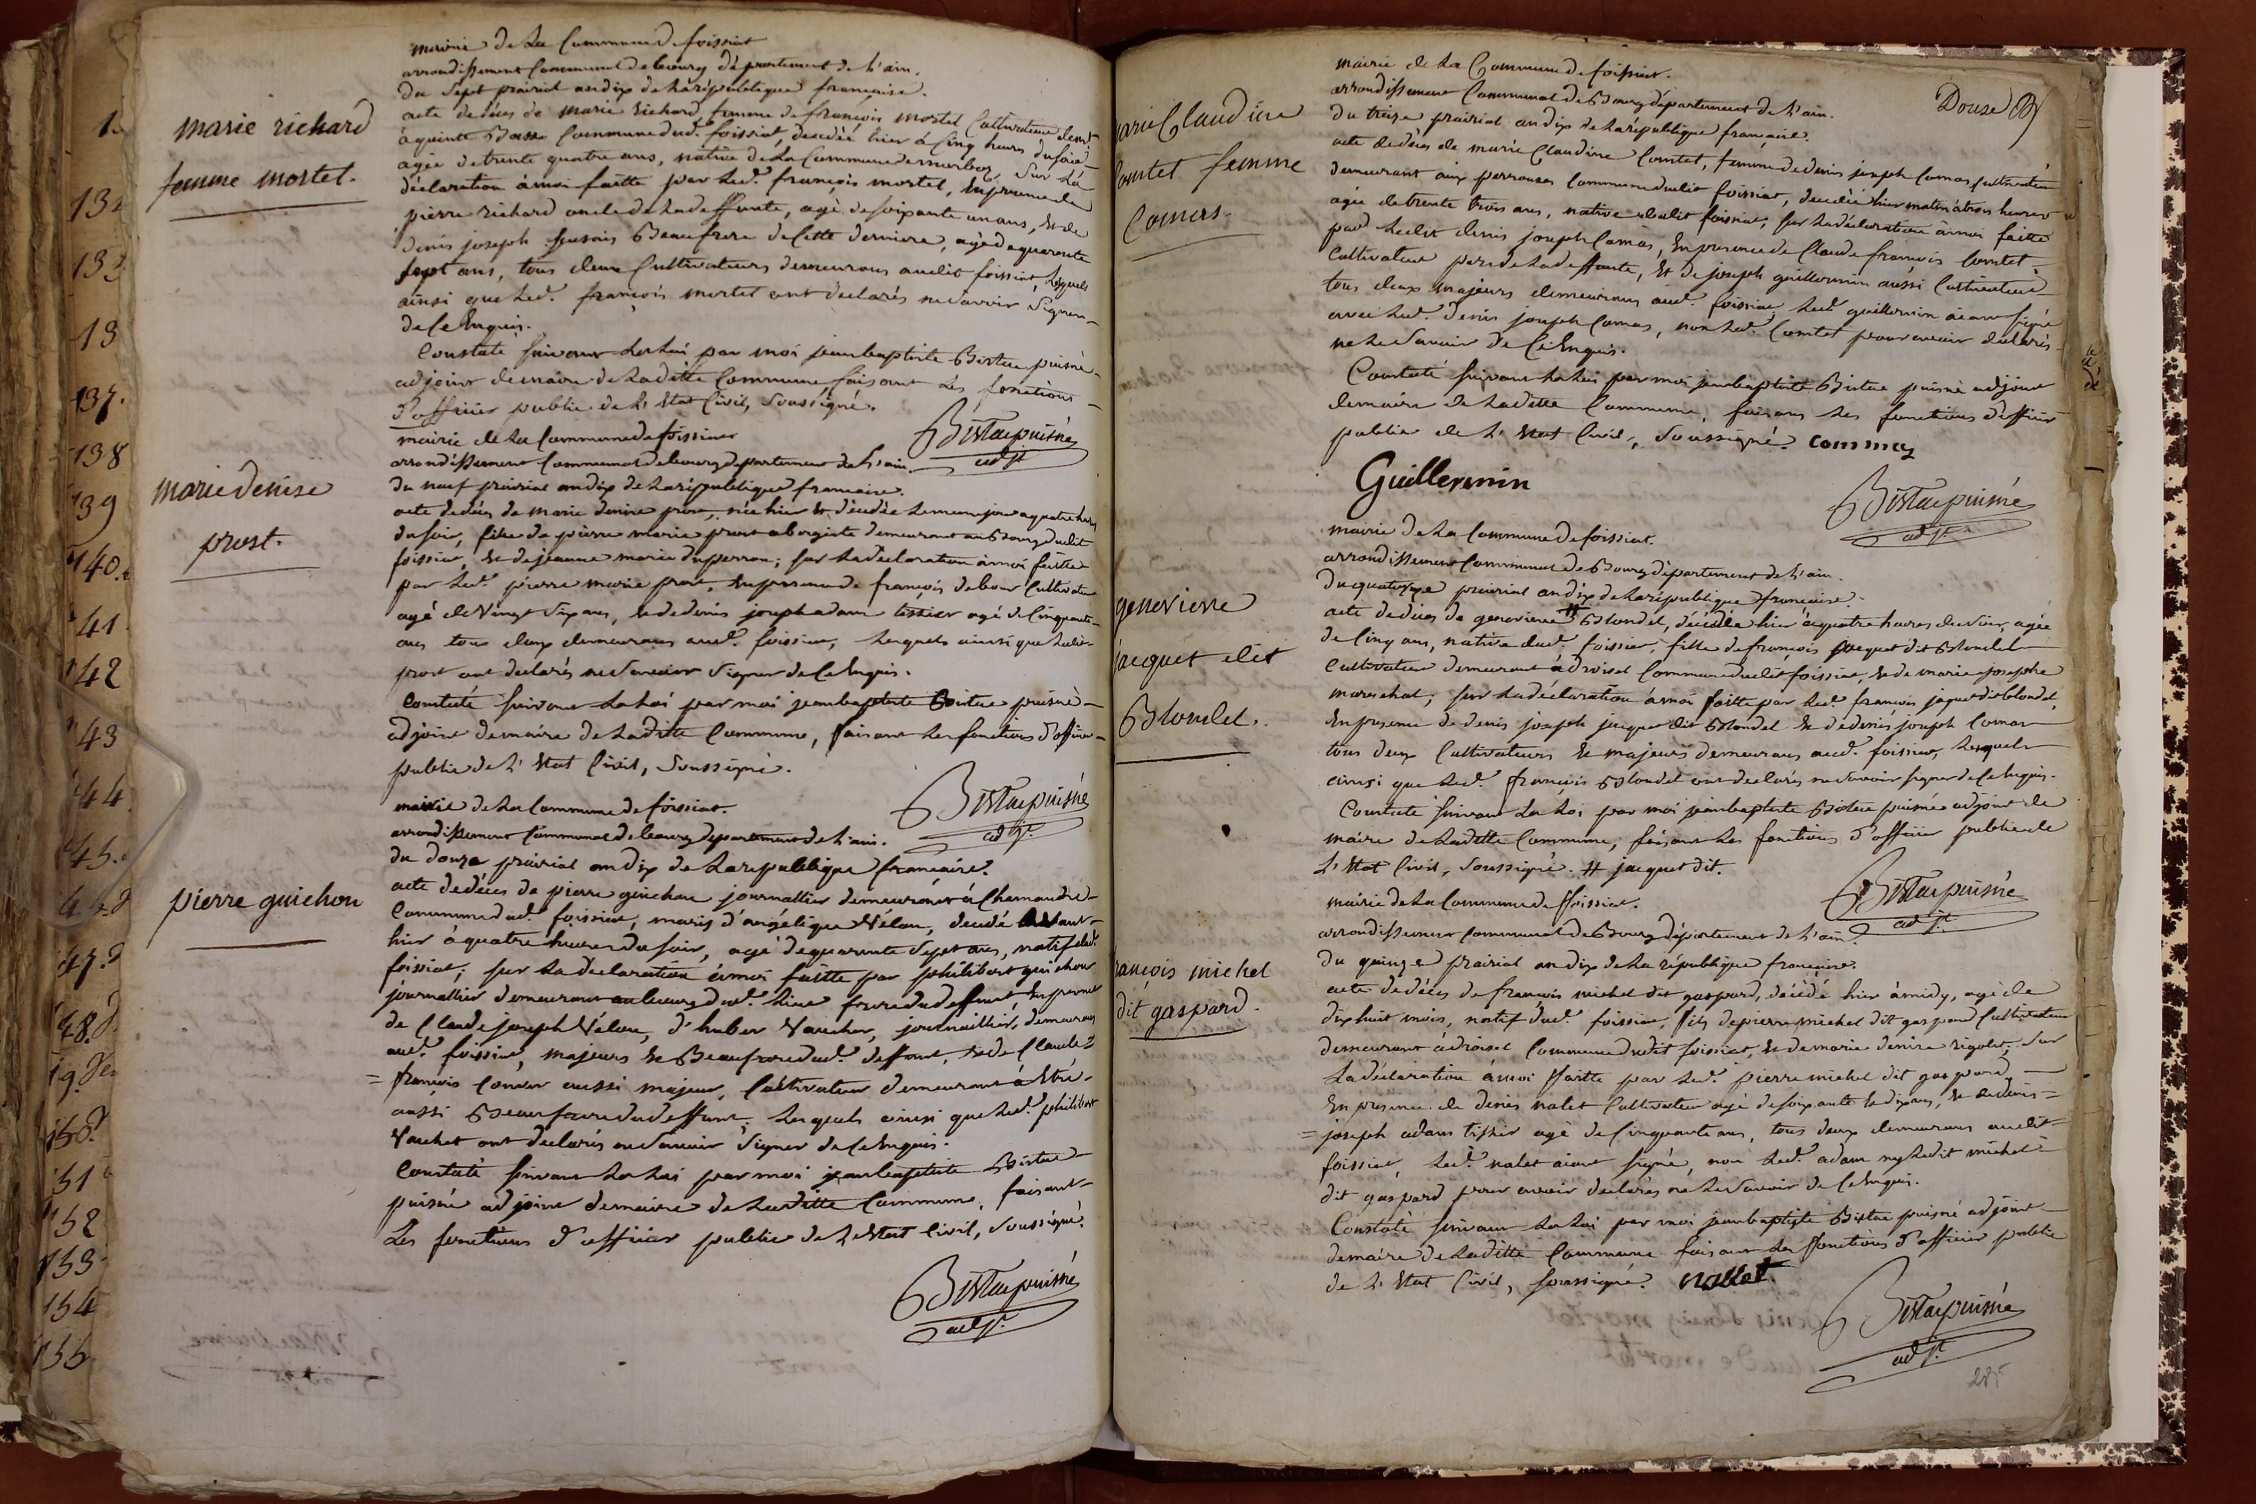 marie richard
femme mortel.
mairie de la Commune de foissiat
arrondissement Communal de bourg département de l'ain.
du sept prairial an dix de la république française.
acte de décès de marie richard femme de françois mortel Cultivateur demt
à quinte Commune dud. foissiat, decedée hier à Cinq heures du soir
agée de trente quatre ans, native de la Commune de marboz, Sur la
déclaration à moi faitte par led. françois mortel, En presence de
pierre richard oncle de la deffunte, agé de soixante un ans, & de
denis joseph Beaufrere de Cette derniere, agé de quarente
sept ans, tous deux Cultivateurs demeurans audit foissiat, Lesquels
ainsi que led. françois mortel ont declarés ne savoir Signer
de Ce Enquis.
Constaté suivant La Loi par moi jean baptiste Bistac puisné
adjoint de maire de Laditte Commune faisant Les fonctions
d'officier public de L'Etat Civil, Soussigné.
Bistac puisné
adjt.
marie denise
prost.
mairie de La Commune de foissiat
arrondissement Communal de bourg departement de L'ain.
du neuf prairial an dix de La république francaise.
acte de décès de marie denise prost, née hier & décédée Le meme jour a quatre heures
du soir, fille de pierre marie prost demeurant au Bourg dudit
foissiat, & de jeanne marie duperron, sur La declaration à moi faitte
par Led. pierre marie prost, En presence de françois debost Cultivateur
agé de Vingt Six ans, & de denis joseph adam tissier agé de Cinquante
ans tous deux demeurans aud. foissiat, Lesquels ainsi que Ledit
prost ont declarés ne Savoir Signer de Ce Enquis.
Constaté suivant La Loi par moi jean baptiste Bistac puisné
adjoint de maire de Laditte Commune, faisant Les fonctions d'officier
public de L'Etat Civil, Soussigné.
Bistac puisné
adjt.
pierre guichon
mairie de La Commune de foissiat.
arrondissement Communal de bourg departement de L'ain.
du douze prairial an dix de La republique francaise.
acte de décès de pierre guichon journallier demeurant à Chamandre
Commune dud. foissiat, maris d'angélique Vélon, decedé avant
hier à quatre heures du soir, agé de quarente Sept ans, natif dud.
foissiat, sur La declaration à moi faitte par philibert guichon
journallier demeurant au bourg dud. Lieu frere du deffunt, En presence
de Claude joseph Vélon, d'huber Vauchet, journaillier, demeurans
aud. foissiat, majeurs & Beaufrere dud. deffunt, & de Claude
= françois aussi majeur, Cultivateur demeurant à
aussi Beaufrere du deffunt. Lesquels ainsi que Led. philibert
Vauchet ont declarés ne Savoir Signer de Ce Enquis.
Constaté suivant La Loi par moi jean baptiste Bistac
puisné adjoint de maire de Laditte Commune, faisant
Les fonctions d'officier public de L'Etat Civil, Soussigné.
Bistac puisné
adjt.
138
139
140.
141
142
143
144
145.
47.d
48.d
151
152
153
154
155
Douse
arie Claudine
Comtet femme
Comas.
mairie de La Commune de foissiat.
arrondissement Communal de Bourg département de L'ain.
du treize prairial an dix de La république française.
acte de décès de marie Claudine Comtet, femme de denis joseph Comas Cultivateur
demeurant aux perrouses Commune dudit foissiat, decedée hier matin à trois heures
agée de trente trois ans, native dudit foissiat, sur La déclaration à moi faitte
par Ledit denis joseph Comas, En presence de Claude françois Comtet
Cultivateur pere de La deffunte, & de joseph guillermin aussi Cultivateur
tous deux majeurs demeurans aud. foissiat, Led. guillermin aiant Signé
avec Led. denis joseph Comas, non Led. Comtet pour avoir declarés
ne Le Savoir de Ce Enquis.
Constaté suivant La Loi par moi jean baptiste Bistac puisné adjoint
de maire de Laditte Commune, faisant Les fonctions d'officier
public de L'Etat Civil, Soussigné. commas
Guillermin
Bistac puisné
adjt.
genevieve
jacquet dit
Blondel.
mairie de La Commune de foissiat.
arrondissement Communal de Bourg département de L'ain.
du quatorze prairial an dix de La république francaise.
acte de décès de genevieve # Blondel, décédée hier à quatre heures du soir, agée
de Cinq ans, native dud. foissiat, fille de françois jacquet dit Blondel
Cultivateur demeurant à droiset Commune dudit foissiat, & de marie josephe
mareschal, sur La déclaration à moi faitte par Led. françois jaquet dit blondel,
En presence de denis joseph jacquet dit Blondel & de denis joseph Comas
tous deux Cultivateurs & majeurs demeurans aud. foissiat, Lesquels
ainsi que Led. françois Blondel ont declarés ne Savoir signer de Ce Enquis.
Constaté suivant La Loi par moi jean baptiste Bistac puisné adjoint de
maire de Laditte Commune, faisant Les fonctions d'officier public de
L'Etat Civil, Soussigné. # jacquet dit.
Bistac puisné
adjt.
rançois michel
dit gaspard.
mairie de La Commune de foissiat.
arrondissement Communal de Bourg département de L'ain.
du quinze prairial an dix de La république francaise.
acte de décès de françois michel dit gaspard, décédé hier à midy, agé de
dix huit mois, natif dud. foissiat, fils de pierre michel dit gaspard Cultivateur
demeurant à droiset Commune dudit foissiat, & de marie denise rigolet, Sur
La déclaration à moi faitte par Led. pierre michel dit gaspard,
En presence de denis nalet Cultivateur agé de soixante & dix ans, & de denis
= joseph adam tissier agé de Cinquante ans, tous deux demeurans audit
foissiat, Led. nalet aiant signé, non Led. adam ny Ledit michel
dit gaspard pour avoir declarés ne Le Savoir de Ce Enquis.
Constaté suivant La Loi par moi jean baptiste Bistac puisné adjoint
de maire de Laditte Commune faisant Les fonctions d'officier public
de L'Etat Civil, soussigné. nallet
Bistac puisné
adjt.
285